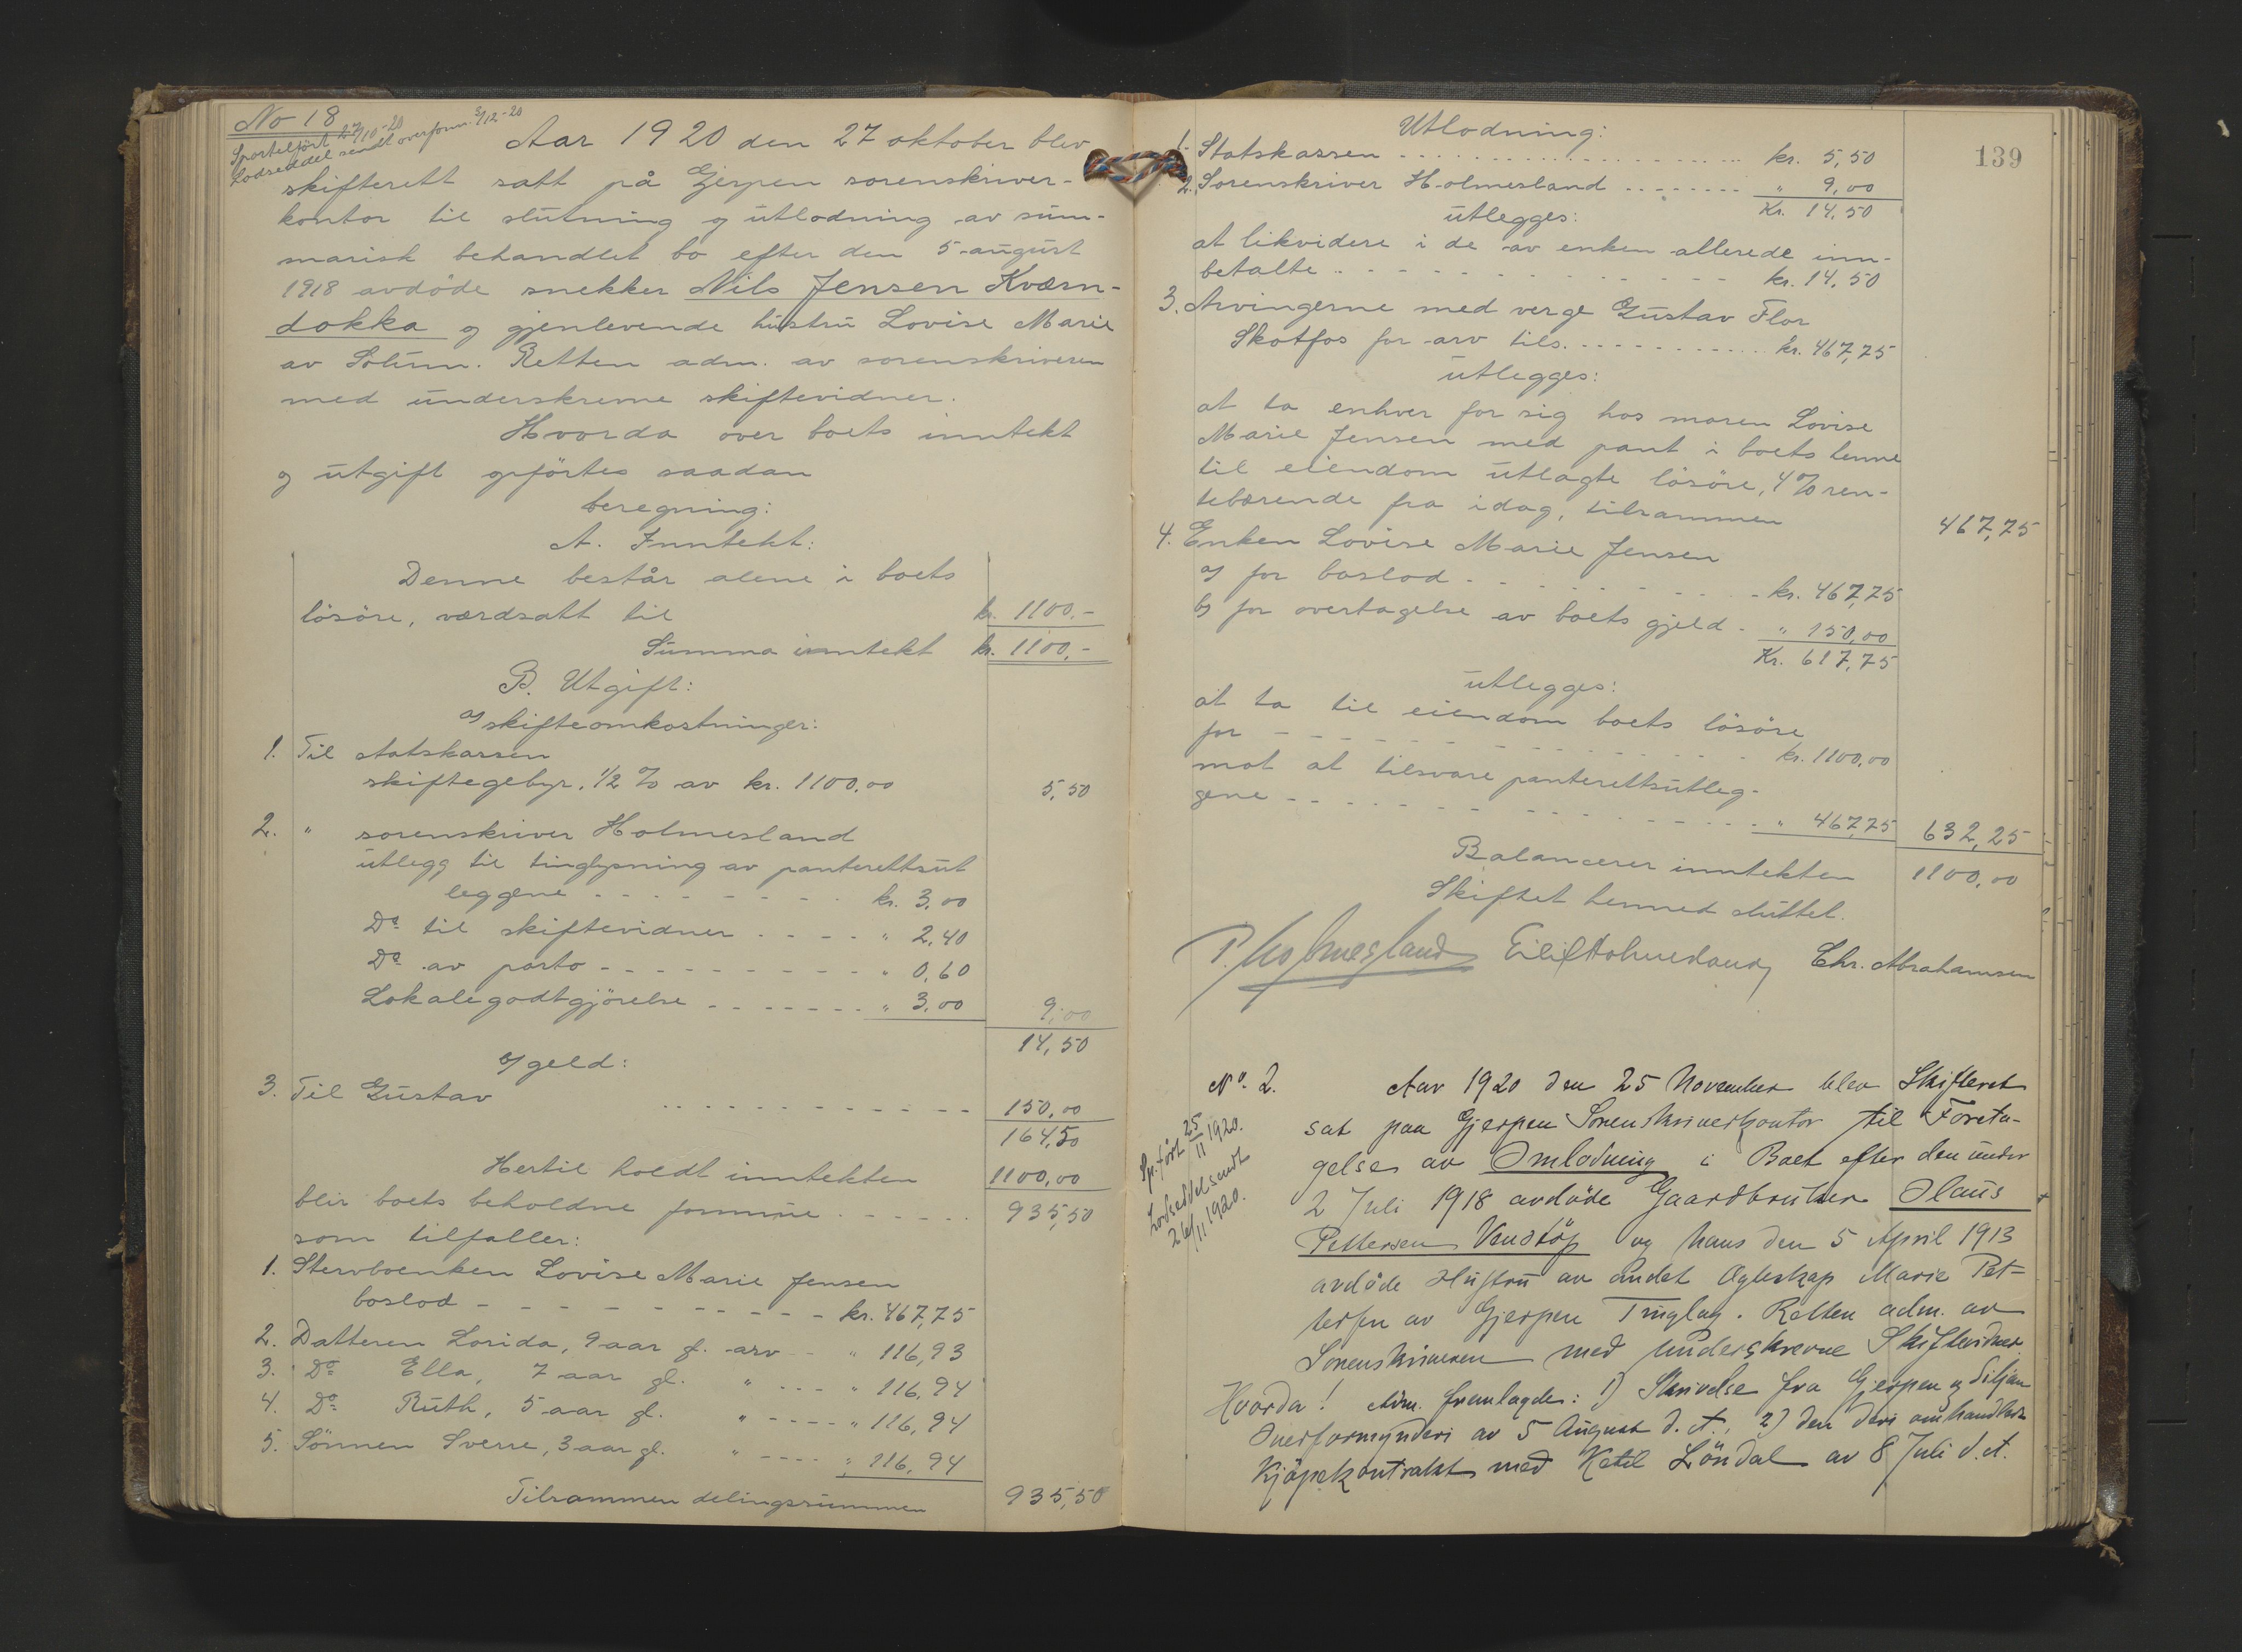 No 18
Sportelført 27/10-20
Lodseddel sendt overform. 3/12-20
Aar 1920 den 27 oktober blev
skifterett satt på Gjerpen sorenskriver-
kontor til slutning og utlodning av sum-
marisk behandlet bo efter den 5 august
1918 avdöde snekker Nils Jensen Kværn-
dokka og gjenlevende hustru Lovise Marie
av Solum. Retten adm. av sorenskriveren
med underskrevne skiftevidner.
Hvorda over boets inntekt
og utgift opförtes saadan
beregning:
A. Inntekt:
Denne består alene i boets
lösöre, værdsatt til kr. 1100.-
Summa inntekt kr. 1100.-
B. Utgift:
a) skifteomkostninger:
1. Til statskassen
skiftegebyr. 1/2 % av kr. 1100.00 5,50
2. " sorenskriver Holmesland
utlegg til tinglysning av panterettsut
leggene kr. 3,00
Do til skiftevidner " 2,40
Do av porto " 0,60
Lokalegodtgjörelse " 3,00 9,00
14,50
b) geld:
3. Til Gustav 150,00
164,50
Hertil holdt inntekten 1100,00
blir boets beholdne formue 935,50
som tilfaller:
1. Stervboenken Lovise Marie Jensen
boslod kr. 467,75
2. Datteren Lorida, 9 aar g. arv " 116,93
3. Do Ella, 7 aar gl. " " 116,94
4. Do Ruth, 5 aar gl. " " 116,94
5. Sönnen Sverre, 3 aar gl. " " 116,94
Tilsammen delingssummen 935,50
139
Utlodning:
1. Statskassen kr. 5,50
2. Sorenskriver Holmesland " 9,00
Kr. 14,50
utlegges:
at likvidere i de av enken allerede inn-
betalte kr. 14,50
3. Arvingerne med verge Gustav Flor
Skotfos for arv tils. kr. 467,75
utlegges:
at ta enhver for sig hos moren Lovise
Marie Jensen med pant i boets henne
til eiendom utlagte lösöre, 4 % ren-
tebærende fra idag, tilsammen 467,75
4. Enken Lovise Marie Jensen
a) for boslod kr. 467,75
b) for overtagelse av boets gjeld " 150,00
Kr. 617,75
utlegges:
at ta til eiendom boets lösöre
for kr. 1100,00
mot at tilsvare panterettsutleg-
gene " 467,75 632,25
Balancerer inntekten 1100,00
Skiftet hermed sluttet.
P. Holmesland Eilif Holmesland Chr. Abrahamsen
No. 2.
Sp. ført 25/11 1920.
Lodseddel sendt
26/11 1920.
Aar 1920 den 25 November blev Skifteret
sat paa Gjerpen Sorenskriverkontor til Foreta-
gelse av Omlodning i Boet efter den under
2 Juli 1918 avdöde Gaardbruker Olaus
Pettersen Venstöp og hans den 5 April 1913
avdöde Hustru av andet Egteskap Marie Pet-
tersen av Gjerpen Tinglag. Retten adm. av
Sorenskriveren med underskrevne Skiftevidner.
Hvorda! Adm. fremlagde: 1) Skrivelse fra Gjerpen og Siljan
Overformynderi av 5 August d. A., 2) den deri omhandlede
Kjöpekontrakt med Ketil Löndal av 8 Juli d. A.